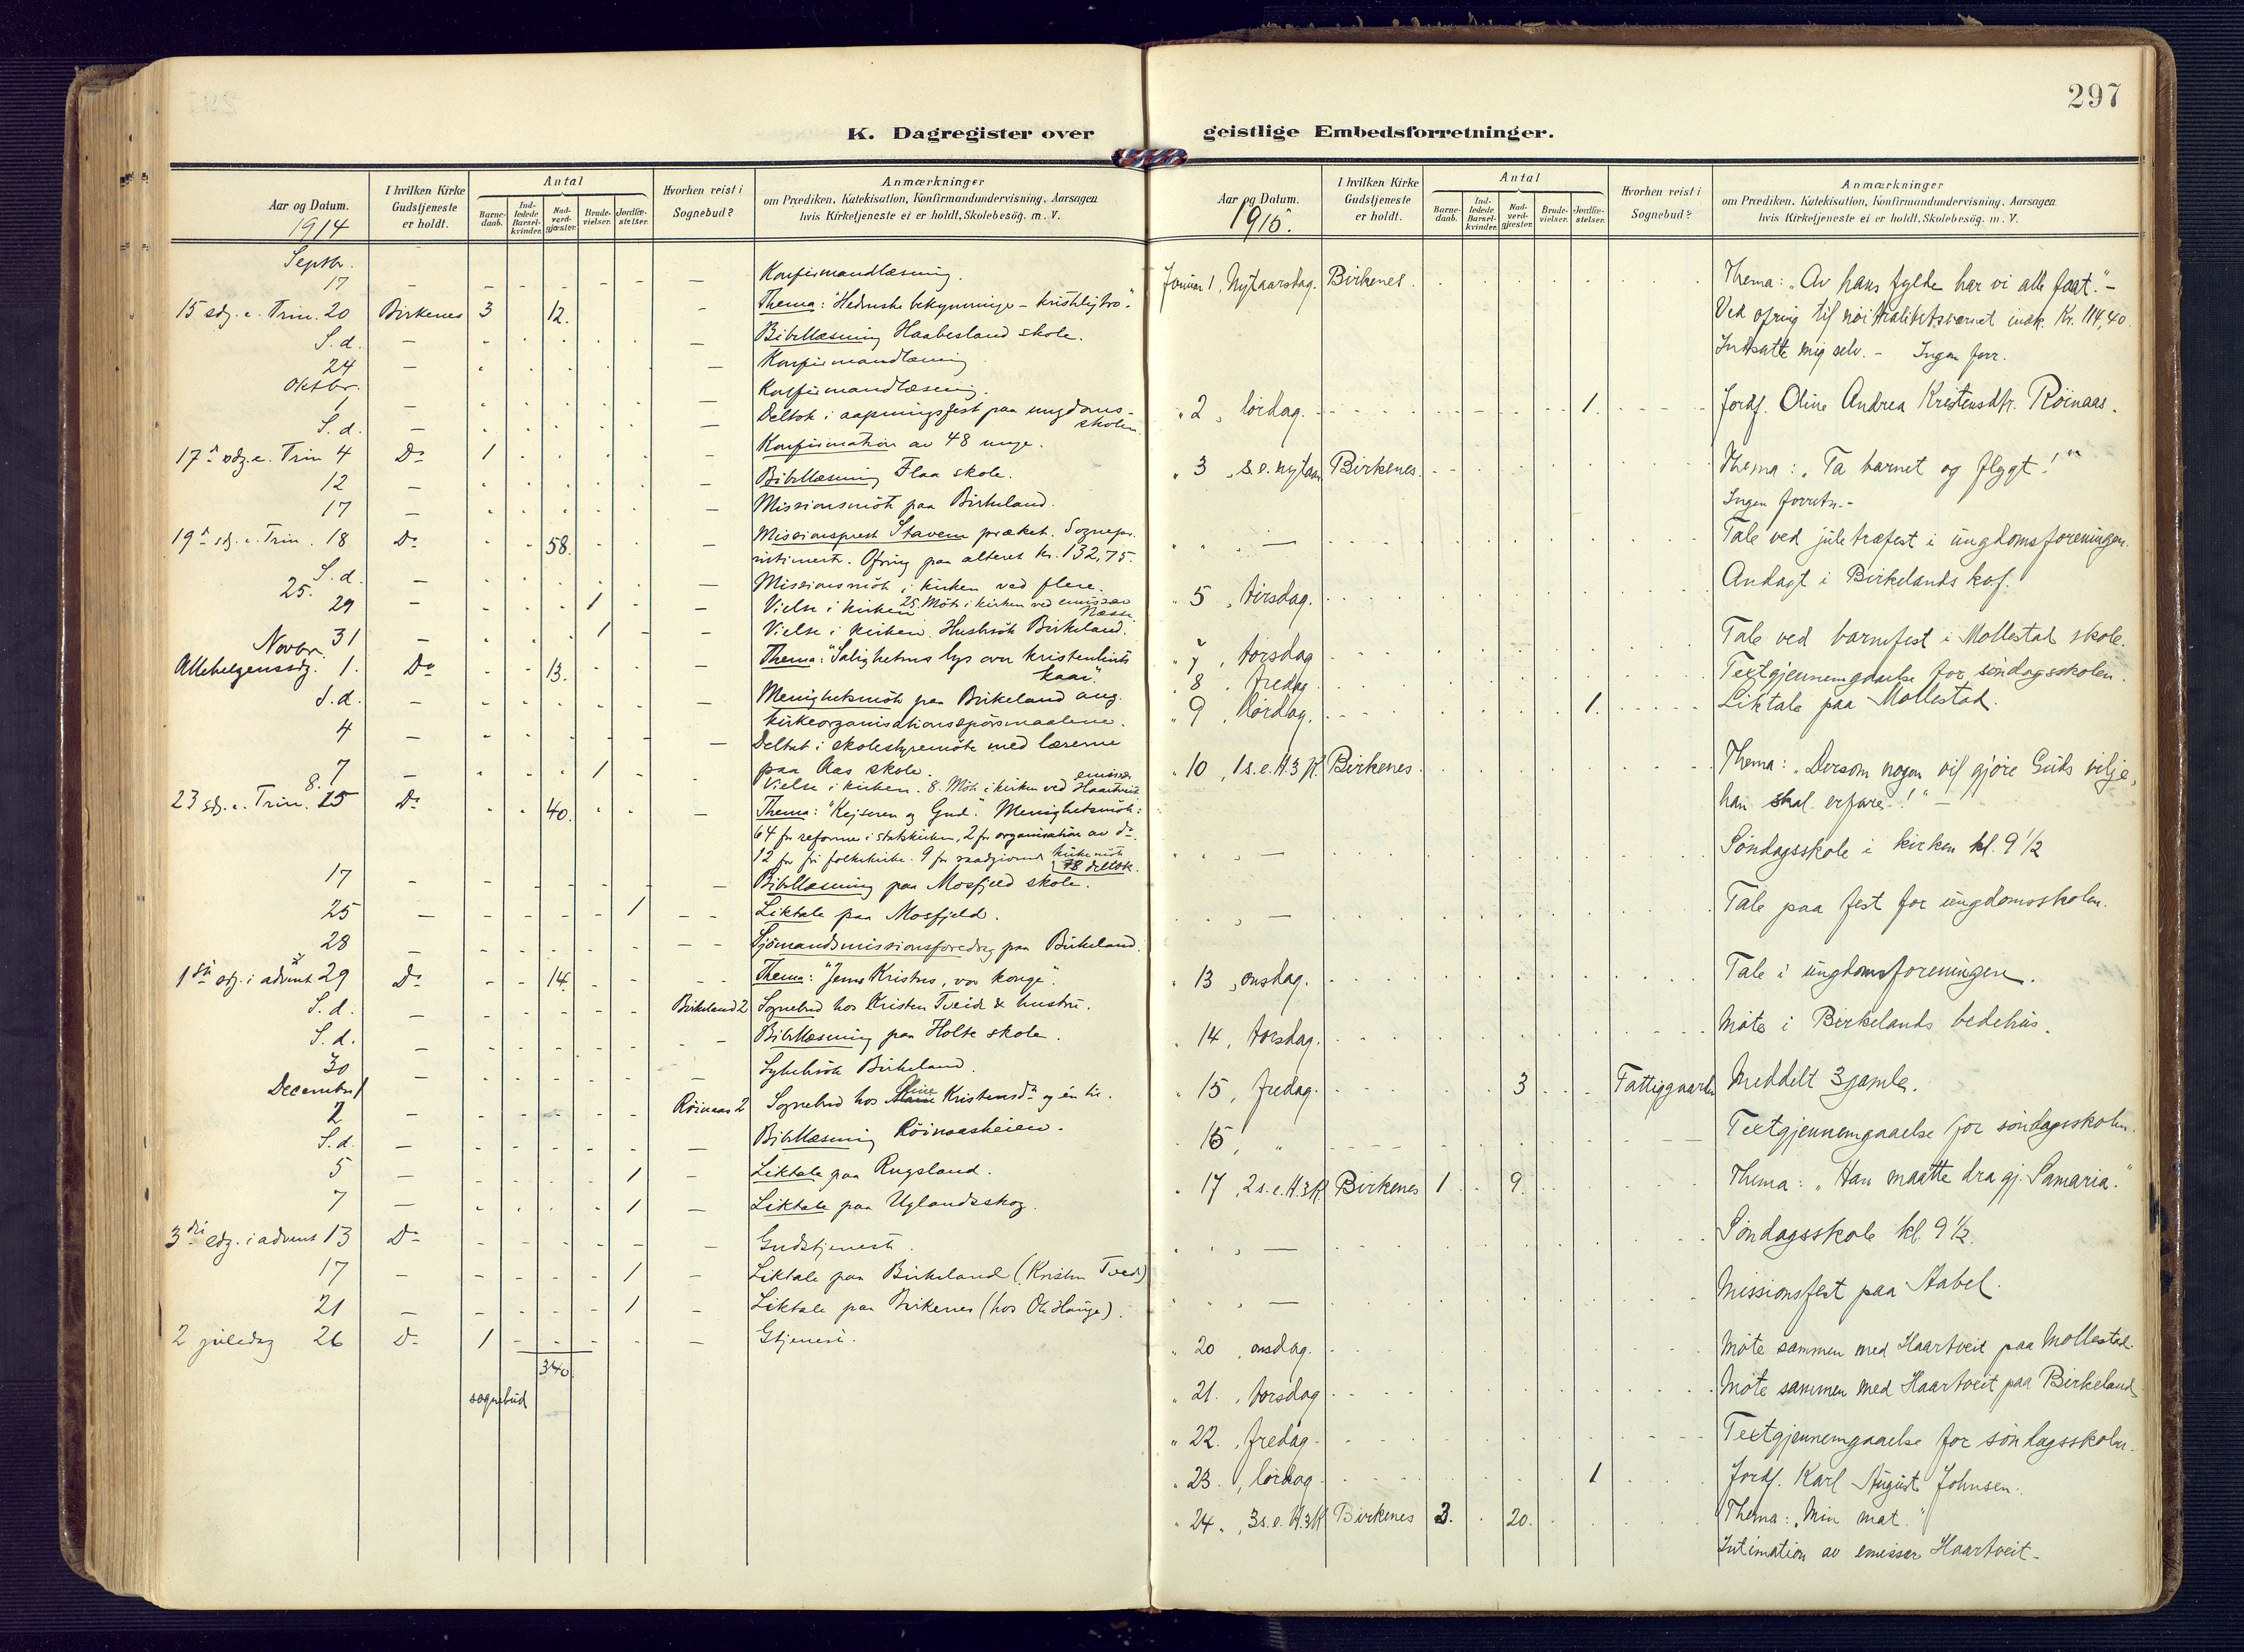 297
K. Dagregister over
geistlige Embedsforretninger.
Aar og Datum.
I hvilken Kirke Gudstjeneste er holdt.
Antal
Barnedaab.
Indledede Barselkvinder.
Nadverdgjæster.
Brudevielser.
Jordfæstelser.
Hvorhen reist i Sognebud?
Anmærkninger
om Prædiken, Katekisation, Konfirmandundervisning, Aarsagen
hvis Kirketjeneste ei er holdt, Skolebesög. m. V.
1914
Septbr.
17 Konfirmandlæsning.
15 sdg. e. Trin. 20 Birkenes 3 12. Thema: "Hedenske bekymringer - kristelig tro".
S. d. Bibellæsning Haabesland skole.
24 Konfirmandlæsning
Oktbr.
1 Konfirmandlæsning.
S. d. Deltok i aapningsfest paa ungdoms-
skolen
17de sdg. e. Trin 4 Do 1 Konfirmation av 48 unge.
12 Bibellæsning Flaa skole.
17 Missionsmöte paa Birkeland.
19de sdg. e. Trin. 18 Do 58. Missionsprest Stavem præket. Sognepr.
intimerte. Ofring paa alteret kr. 132,75.
S. d. Missionsmöte i kirken ved flere.
25. 29 1 Vielse i kirken 25. Möte i kirken ved emissær
Næsse
31 1 Vielse i kirken. Husbesök Birkeland.
Novbr.
Allehelgenssdg. 1. Do 13. Thema: "Salighetens lys over kristenlivets
kaar".
S. d. Menighetsmöte paa Birkeland ang.
kirkeorganisationsspörsmaalene.
4 Deltat i skolestyremöte med lærerne
paa Aas skole.
7 1 Vielse i kirken. 8. Möte i kirken ved emissær Haartveit
8.
23 sdg. e. Trin. 15 Do 40. Thema: "Keiseren og Gud". Menighetsmöte:
64 for reformer i statskirken, 2 for organisation av do
12 for fri folkekirke. 9 for raadgivende kirkemöte
78 deltok.
17 Bibellæsning paa Mosfjeld skole.
25 1 Liktale paa Mosfjeld.
28 Sjömandsmissionsforedrag paa Birkeland.
1ste sdg. i advent 29 Do 14. Thema: "Jesus Kristus, vor konge".
S. d. Birkeland 2 Sognebud hos Kristen Tveide & hustru.
S. d. Bibellæsning paa Holte skole.
30 Sykebesök Birkeland.
December 1
2 Röinaas 2 Sognebud hos Oline Kristensdtr og én til.
S. d. Bibellæsning Röinaasheien.
5 1 Liktale paa Rugsland.
7 1 Liktale paa Uglandsskog.
3die sdg. i advent 13 Do Gudstjeneste.
17 1 Liktale paa Birkeland (Kristen Tveid)
21 1 Liktale paa Birkenes (hos Ole Hauge).
2 juledag 26 Do 1 Gtjeneste.
340.
sognebud
Aar og Datum.
I hvilken Kirke Gudstjeneste er holdt.
Antal
Barnedaab.
Indledede Barselkvinder.
Nadverdgjæster.
Brudevielser.
Jordfæstelser.
Hvorhen reist i Sognebud?
Anmærkninger
om Prædiken, Katekisation, Konfirmandundervisning, Aarsagen
hvis Kirketjeneste ei er holdt, Skolebesög. m. V.
1915.
Januar 1, Nytaarsdag. Birkenes. Thema: "Av hans fylde har vi alle faat". -
Ved ofring til nöitralitetsvernet indk. Kr. 114,40.
Indsatte mig selv. - Ingen forr.
" 2, lördag. 1. Jordf. Oline Andrea Kristensdtr. Röinaas.
" 3, s. e. nytaar Birkenes. Thema: "Ta barnet og flygt!"
Ingen forretn. -
" " , — Tale ved juletræfest i ungdomsforeningen.
Andagt i Birkelands kof.
" 5, tirsdag. Tale ved barnefest i Mollestad skole.
" 7, torsdag
" 8, fredag. Textgjennemgaaelse for söndagsskolen.
" 9, lördag. 1. Liktale paa Mollestad.
" 10, 1 s. e. H. 3 K. Birkenes. Thema: "Dersom nogen vil gjöre Guds vilje,
han skal erfare!" -
" " , — Söndagsskole i kirken kl. 9 1/2
" " , — Tale paa fest for ungdomsskolen.
" 13, onsdag. Tale i ungdomsforeningen.
" 14, torsdag. Möte i Birkelands bedehus.
" 15, fredag. 3 Fattiggaarden Meddelt 3 gamle.
" 16, " Textgjennemgaaelse for söndagsskolen.
" 17, 2 s. e. H. 3 K. Birkenes 1 9. Thema: "Han maatte dra gj. Samaria."
" " , — Söndagsskole kl. 9 1/2.
" " , — Missionsfest paa Stabel.
" 20, onsdag. Möte sammen med Haartveit paa Mollestad.
" 21., torsdag Möte sammen med Haartveit paa Birkeland
" 22., fredag. Textgjennemgaaelse for söndagsskolen.
" 23., lördag 1 Jordf. Karl August Johnsen.
" 24., 3 s. e. H. 3 K Birkenes 3. 20. Thema: "Min mat."
Intimation av emissær Haartveit -